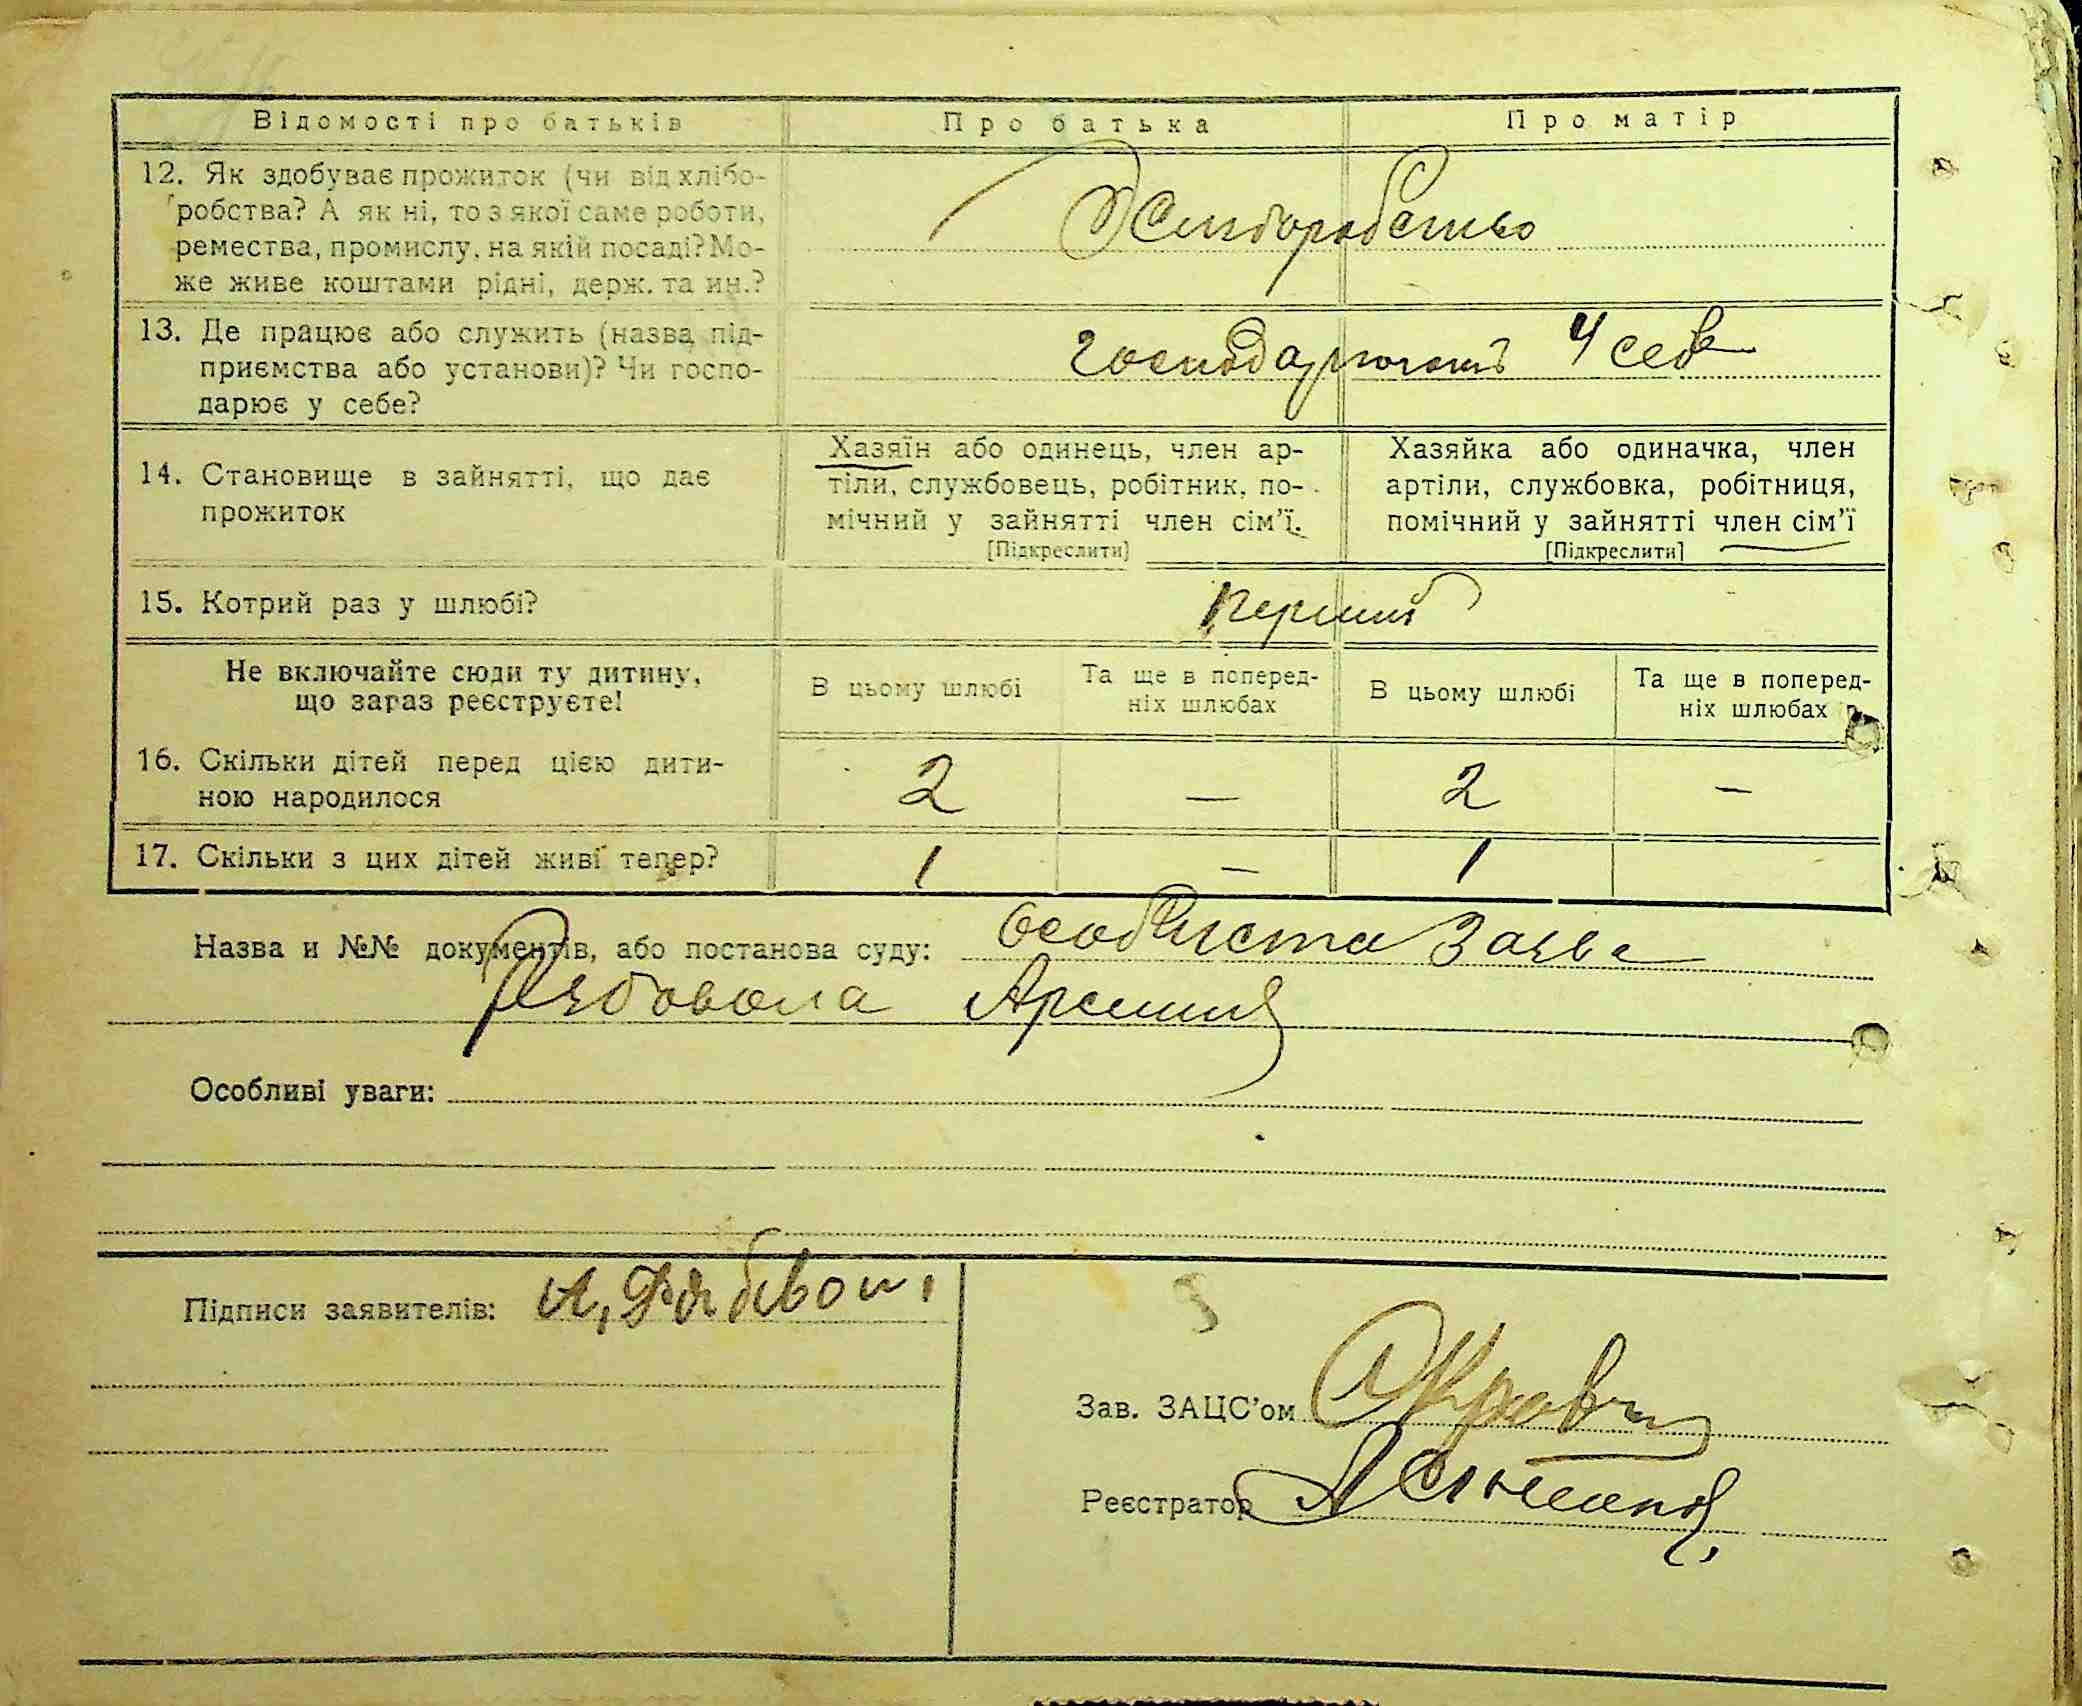 Відомості про батьків Про батька Про матір
12. Як здобуває прожиток (чи від хлібо-
робства? А як ні, то з якої саме роботи,
ремества, промислу, на якій посаді? Мо-
же живе коштами рідні, держ. та ин.?
Хліборобство
13. Де працює або служить (назва під-
приємства або установи)? Чи госпо-
дарює у себе?
Господарюють у себе
14. Становище в зайнятті, що дає
прожиток
Хазяїн або одинець, член ар-
тіли, службовець, робітник, по-
мічний у зайнятті член сім'ї.
[Підкреслити]
Хазяйка або одиначка, член
артіли, службовка, робітниця,
помічний у зайнятті член сім'ї
[Підкреслити]
15. Котрий раз у шлюбі?
Перший
Не включайте сюди ту дитину,
що зараз реєструєте!
В цьому шлюбі
Та ще в поперед-
ніх шлюбах
В цьому шлюбі
Та ще в поперед-
ніх шлюбах
16. Скільки дітей перед цією дити-
ною народилося
2 — 2 —
17. Скільки з цих дітей живі тепер? 1 — 1
Назва и №№ документів, або постанова суду: особиста заява
Рябовола
Особливі уваги:
Підписи заявителів:
Зав. ЗАЦС'ом
Реєстратор